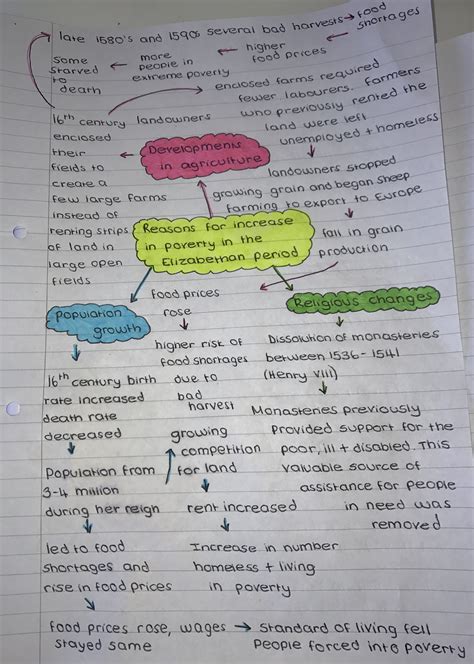 late 1580's and 1590s several bad harvests → food
shortages
higher
food prices
more
people in
extreme poverty
some
starved
to
death
enclosed farms required
fewer labourers. Farmers
who previously rented the
land were left
unemployed + homeless
16th century landowners
enclosed
their
fields to
create a
few large farms
instead of
renting strips
of land in
large open
fields
Developments
in agriculture
landowners stopped
growing grain and began sheep
farming to export to Europe
fall in grain
production
Reasons for increase
in poverty in the
Elizabethan period
food prices
rose
higher risk of
food shortages
due to
bad
harvest
Population
growth
16th century birth
rate increased
death rate
decreased
Population from
3-4 million
during her reign
led to food
shortages and
rise in food prices
growing
competition
for land
rent increased
Increase in number
homeless + living
in poverty
food prices rose, wages → standard of living fell
stayed same
People forced into poverty
Religious changes
Dissolution of monasteries
between 1536-1541
(Henry VIII)
Monasteries previously
provided support for the
poor, ill + disabled. This
valuable source of
assistance for people
in need was
removed